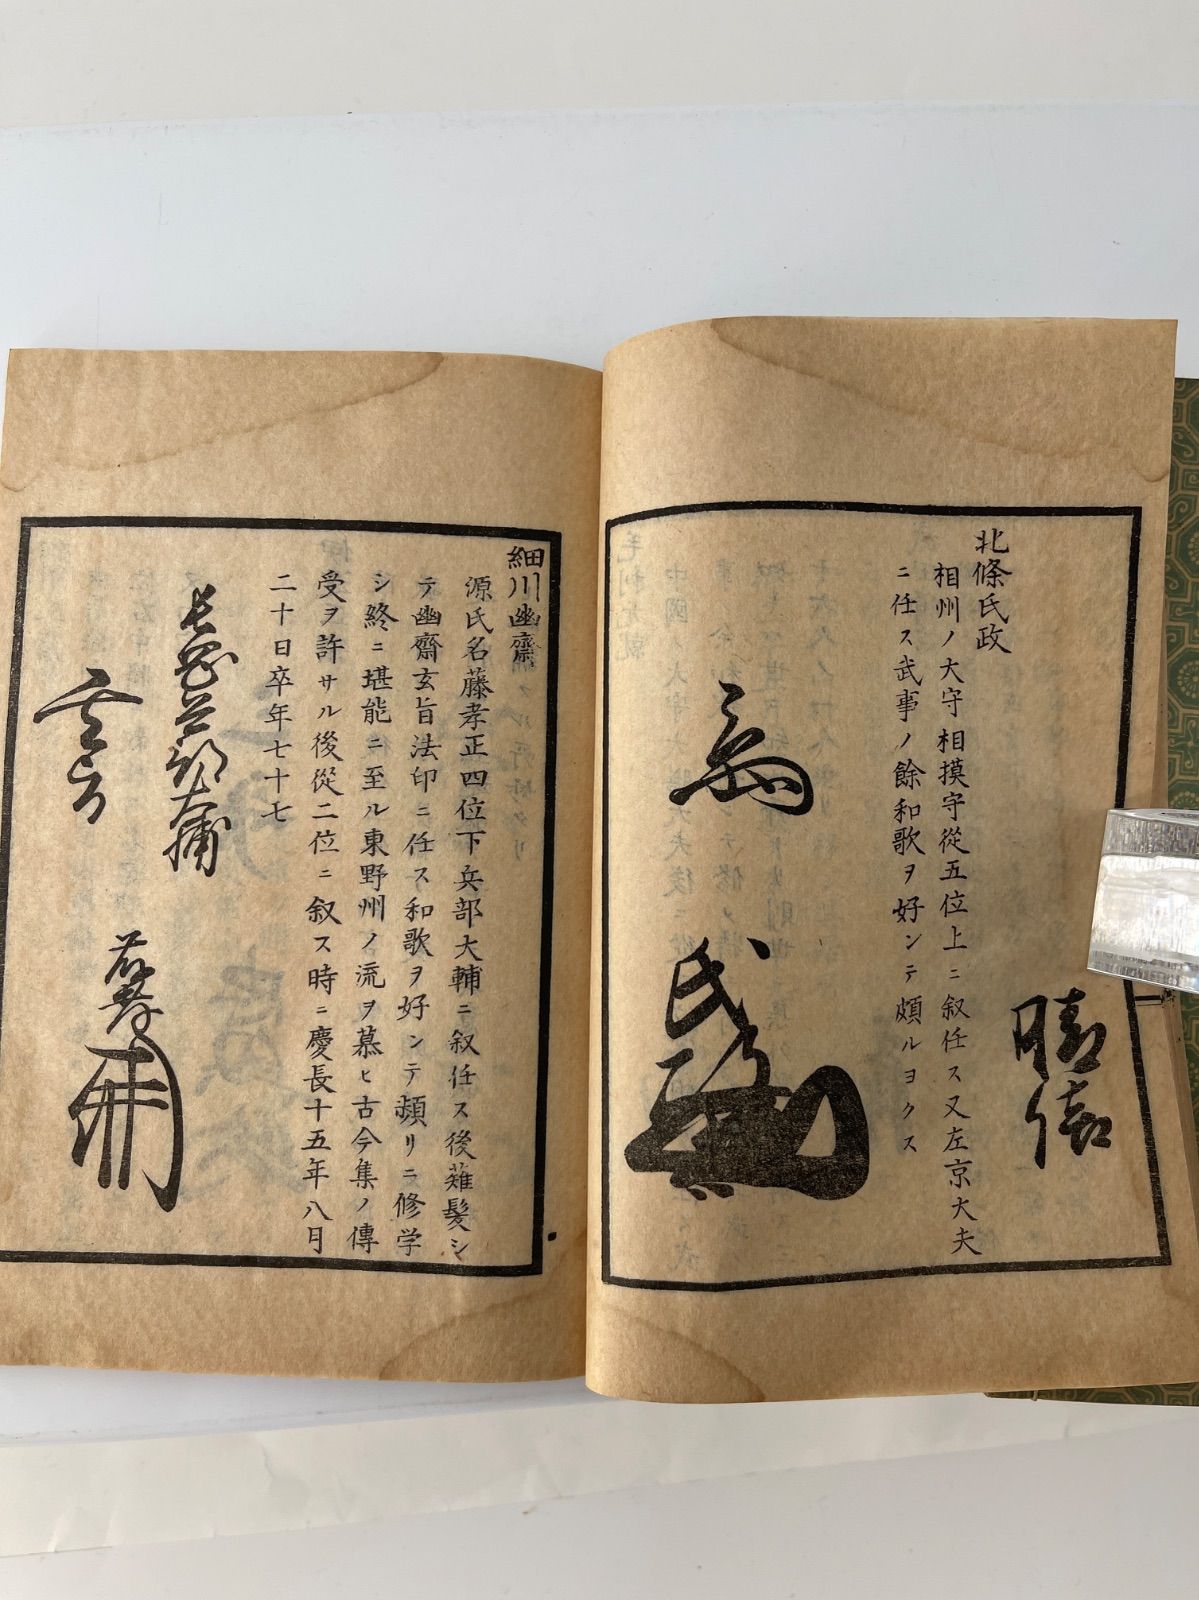 北條氏政
相州ノ大守相摸守從五位上ニ叙任ス又左京大夫
ニ任ス武事ノ餘和歌ヲ好ンテ頗ルヨクス
氏政
細川幽齋
源氏名藤孝正四位下兵部大輔ニ叙任ス後薙髪シ
テ幽齋玄旨法印ニ任ス和歌ヲ好ンテ頻リニ修学
シ終ニ堪能ニ至ル東野州ノ流ヲ慕ヒ古今集ノ傳
受ヲ許サル後從二位ニ叙ス時ニ慶長十五年八月
二十日卒年七十七
長岡兵部大輔
玄旨
藤孝